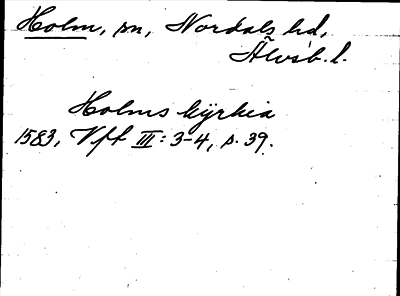 Holm, sn, Nordals hd,
Älvsb. l.
Holms kÿrkia
1583, Vft III: 3-4, s. 39.